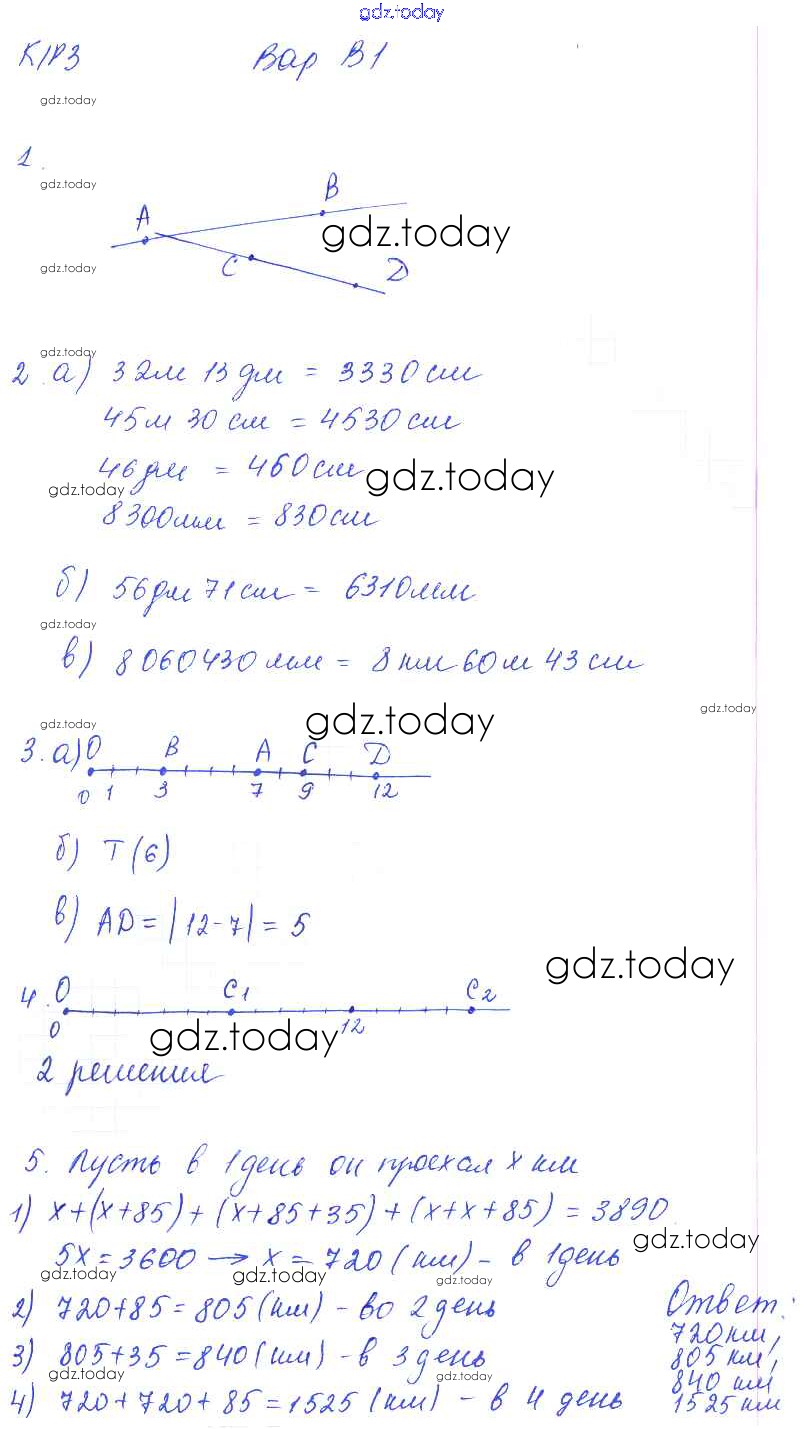 gdz.today
К/Р3 Вар В1
gdz.today
1.
gdz.today
B
A
gdz.today
gdz.today
C D
gdz.today
2 а) 32м 13дм = 3330см
45м 30см = 4530см
46дм = 460см gdz.today
gdz.today
8300мм = 830см
б) 56дм 71см = 6310мм
gdz.today
в) 8060430мм = 8км 60м 43см
gdz.today
gdz.today
gdz.today
3. а) O B A C D
0 1 3 7 9 12
б) T(6)
в) AD = |12-7| = 5
gdz.today
4. O C1 C2
0 12
gdz.today
2 решения
5. Пусть в 1день он проехал x км
1) x+(x+85)+(x+85+35)+(x+x+85) = 3890
gdz.today
5x = 3600 → x = 720 (км) - в 1день
gdz.today gdz.today gdz.today
2) 720+85 = 805 (км) - во 2 день
3) 805+35 = 840 (км) - в 3 день
gdz.today gdz.today
4) 720+720+85 = 1525 (км) - в 4 день
Ответ:
720км,
805км,
840 км
1525км